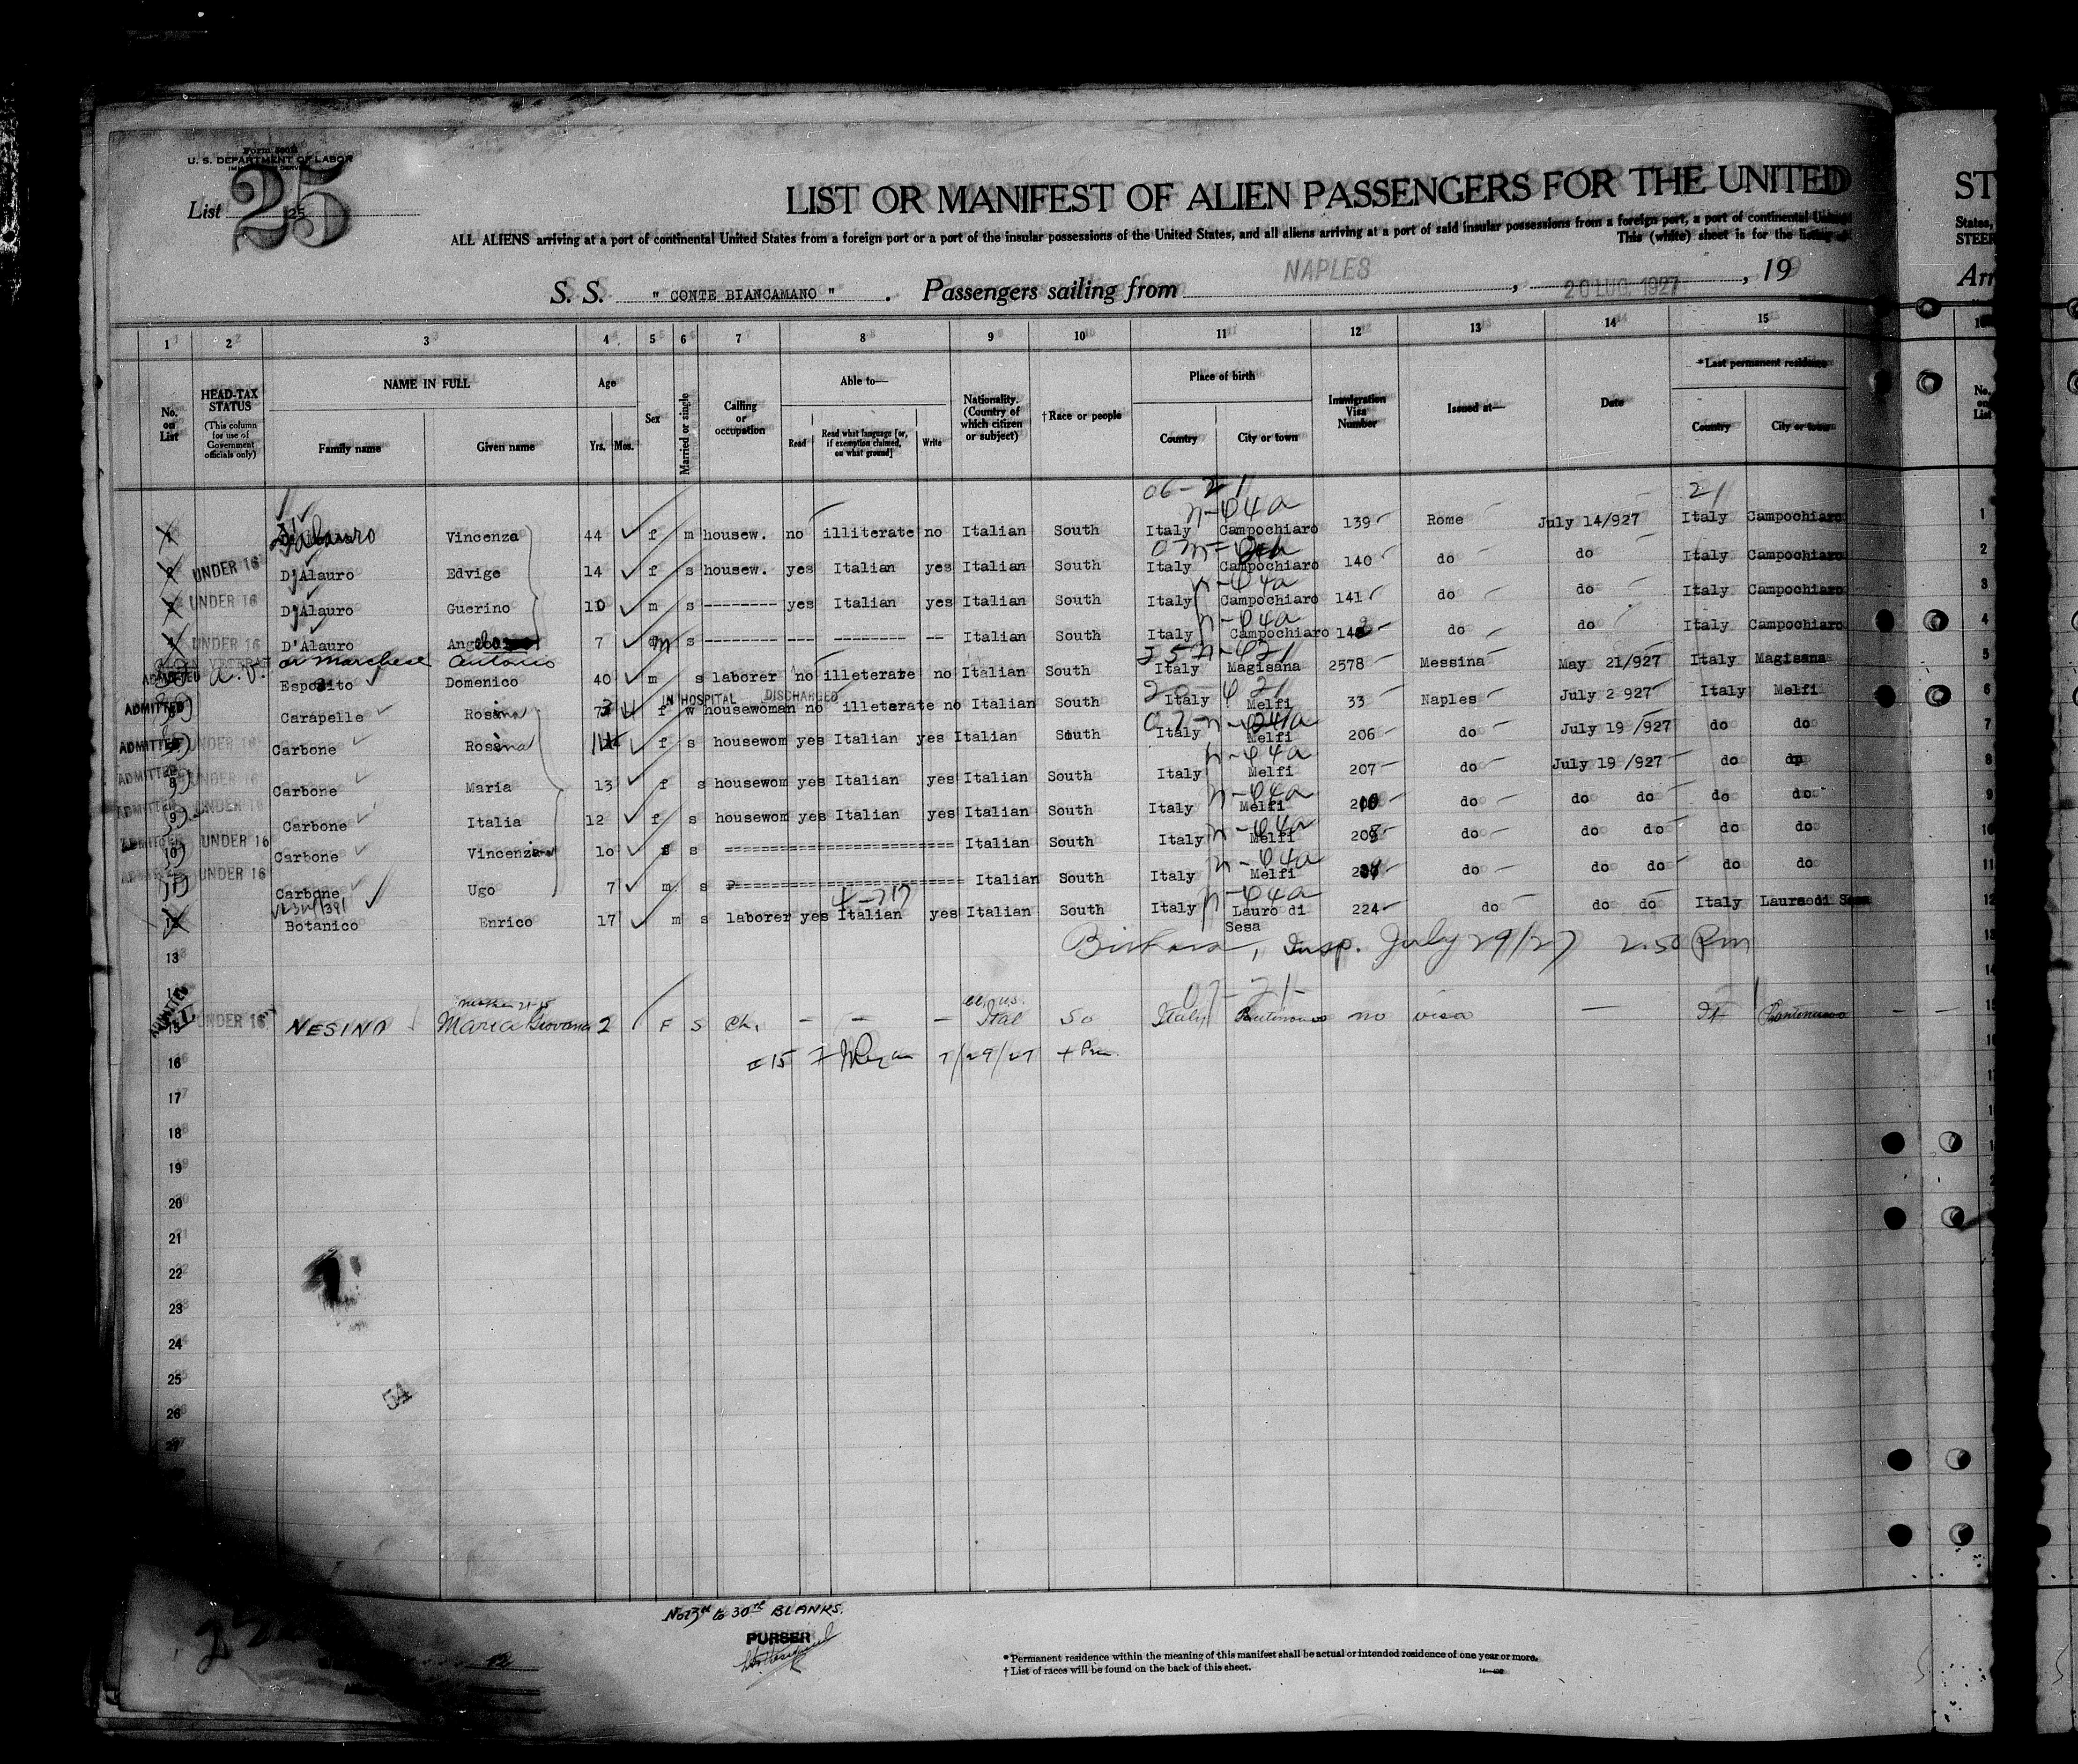 Form 500B
U. S. DEPARTMENT OF LABOR
List 25
25
LIST OR MANIFEST OF ALIEN PASSENGERS FOR THE UNITED
ALL ALIENS arriving at a port of continental United States from a foreign port or a port of the insular possessions of the United States, and all aliens arriving at a port of said insular possessions from a foreign port, a port of continental United
This (white) sheet is for the listing of
S. S. " CONTE BIANCAMANO " . Passengers sailing from NAPLES , 20 LUG. 1927 , 19
1 2 3 4 5 6 7 8 9 10 11 12 13 14 15
No. on List
HEAD-TAX STATUS (This column for use of Government officials only)
NAME IN FULL
Family name Given name
Age
Yrs. Mos.
Sex
Married or single
Calling or occupation
Able to—
Read Read what language [or, if exemption claimed, on what ground] Write
Nationality. (Country of which citizen or subject)
† Race or people
Place of birth
Country City or town
Immigration Visa Number
Issued at—
Date
* Last permanent residence
Country City or town
06-21 21
n-04a
D'Alauro Vincenza 44 f m housew. no illiterate no Italian South Italy Campochiaro 139 Rome July 14/927 Italy Campochiaro
UNDER 16 D'Alauro Edvige 14 f s housew. yes Italian yes Italian South Italy Campochiaro 140 do do Italy Campochiaro
n-04a
UNDER 16 D'Alauro Guerino 10 m s -------- yes Italian yes Italian South Italy Campochiaro 141 do do Italy Campochiaro
n-04a
UNDER 16 D'Alauro Angelo 7 m s -------- --- -------- -- Italian South Italy Campochiaro 142 do do Italy Campochiaro
or Marchese Antonio
ADMITTED Esposito Domenico 40 m s laborer no illeterate no Italian South Italy Magisana 2578 Messina May 21/927 Italy Magisana
IN HOSPITAL DISCHARGED
ADMITTED Carapelle Rosina 73 f w housewoman no illeterate no Italian South Italy Melfi 33 Naples July 2 927 Italy Melfi
ADMITTED UNDER 16 Carbone Rosina 14 f s housewom yes Italian yes Italian South Italy Melfi 206 do July 19 /927 do do
n-04a
ADMITTED UNDER 16 Carbone Maria 13 f s housewom yes Italian yes Italian South Italy Melfi 207 do July 19 /927 do do
n-04a
ADMITTED UNDER 16 9 Carbone Italia 12 f s housewom yes Italian yes Italian South Italy Melfi do do do do do
n-04a
ADMITTED UNDER 16 10 Carbone 10 s s ========================= Italian South Italy Melfi do do do do do
n-04a
ADMITTED UNDER 16 11 Carbone Ugo 7 m s ========================= Italian South Italy Melfi do do do do do
n-04a
12 Botanico Enrico 17 m s laborer yes Italian yes Italian South Italy Lauro di Sesa 224 do do do Italy Lauro di Sesa
13 Insp. July 29/27 2.50 Pm
14
07-21
ADMITTED 15 UNDER 16 NESINO Maria Giovana 2 F S Ch. - - - Ital So Italy no visa — It
16 #15 7/29/27 Pm.
17
18
19
20
21
22
23
24
25
54
26
27
No 13th to 30th BLANKS.
PURSER
* Permanent residence within the meaning of this manifest shall be actual or intended residence of one year or more.
† List of races will be found on the back of this sheet.
ST
States,
STEER
Arr
No. on List